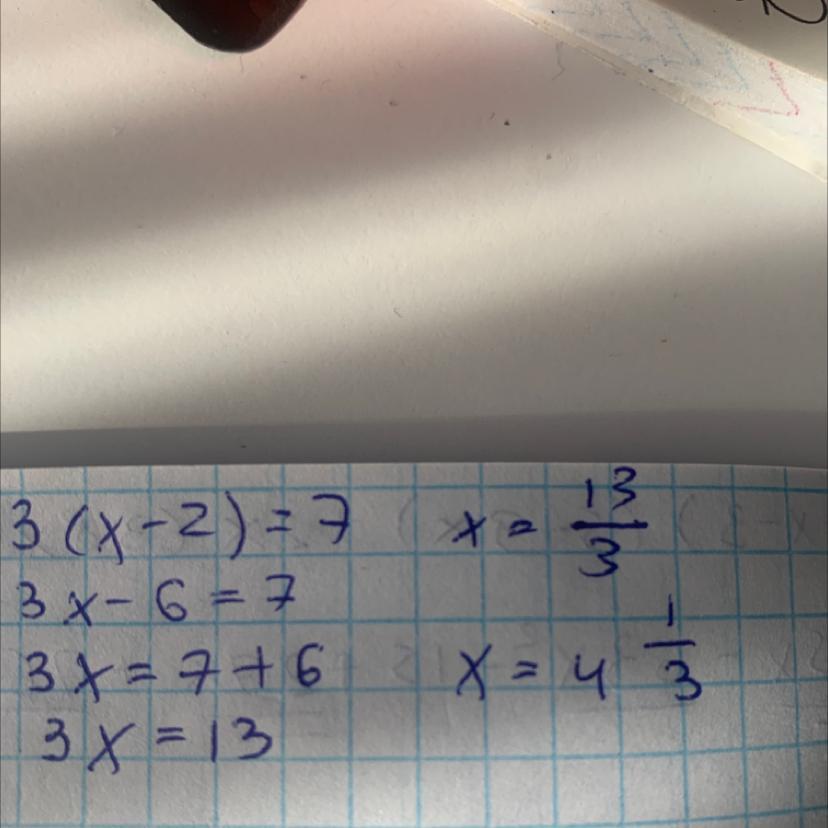 3(x-2)=7
3x-6=7
3x=7+6
3x=13
x=13/3
x=4 1/3